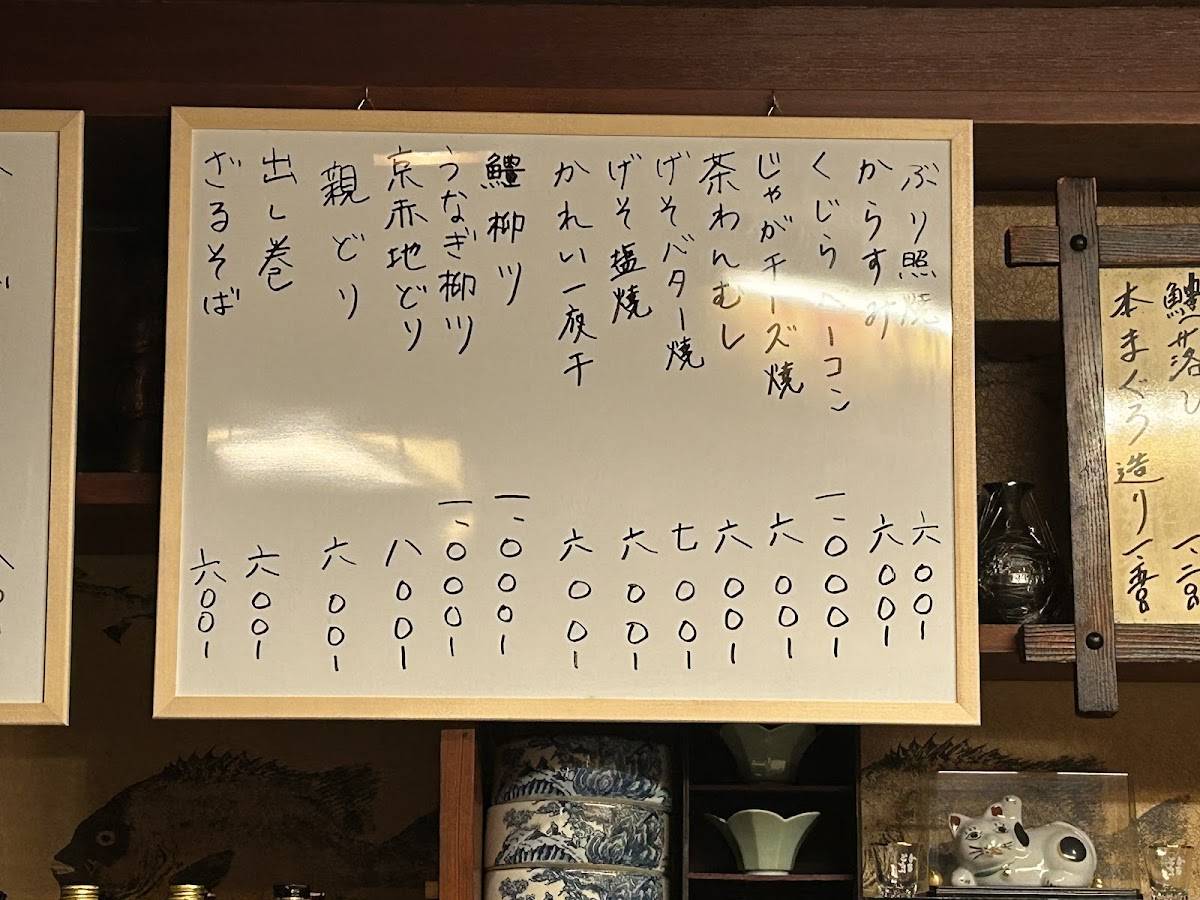 本まぐろ造り
ぶり照焼 六〇〇ー
からすみ 六〇〇ー
くじらベーコン 一、〇〇〇ー
じゃがチーズ焼 六〇〇ー
茶わんむし 六〇〇ー
げそバター焼 七〇〇ー
げそ塩焼 六〇〇ー
かれい一夜干 六〇〇ー
鱧柳川 一、〇〇〇ー
うなぎ柳川 一、〇〇〇ー
京赤地どり 八〇〇ー
親どり 六〇〇ー
出し巻 六〇〇ー
ざるそば 六〇〇ー